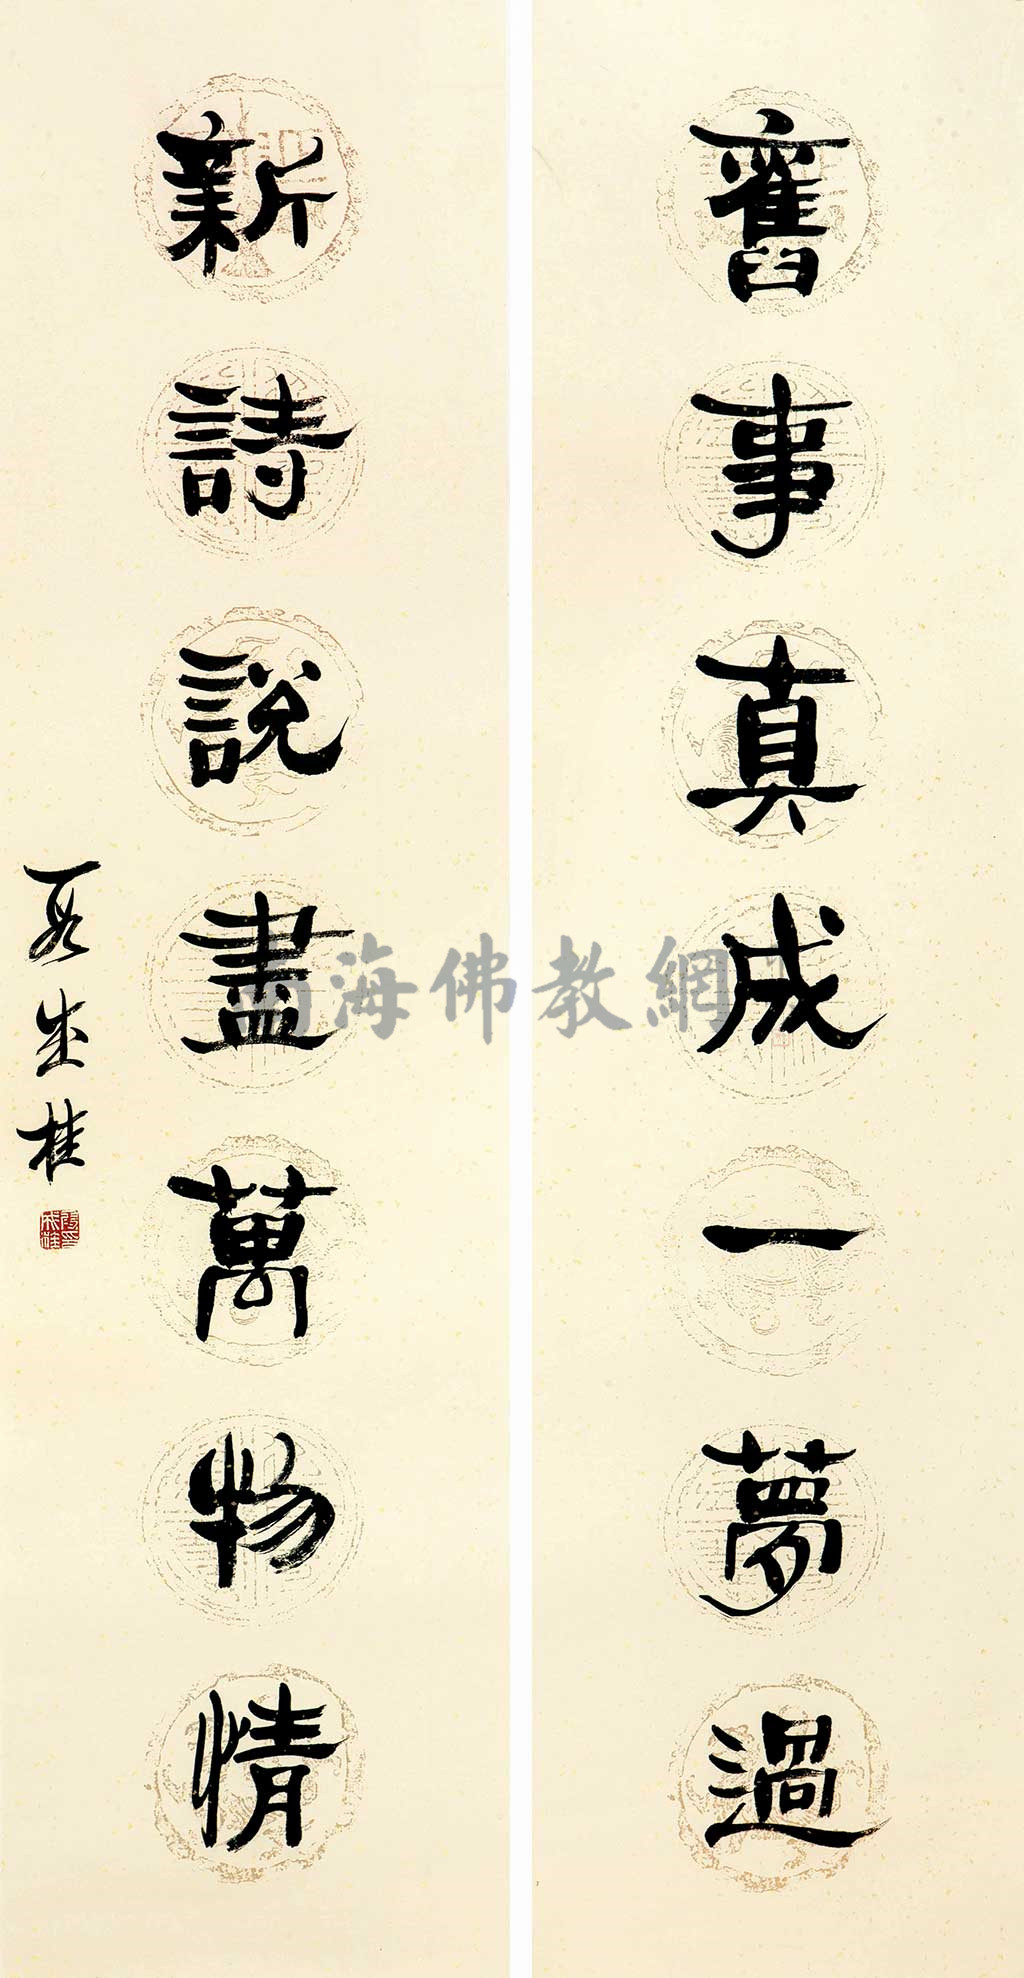 舊事真成一夢過
新詩說盡萬物情
段成桂
南海佛教網